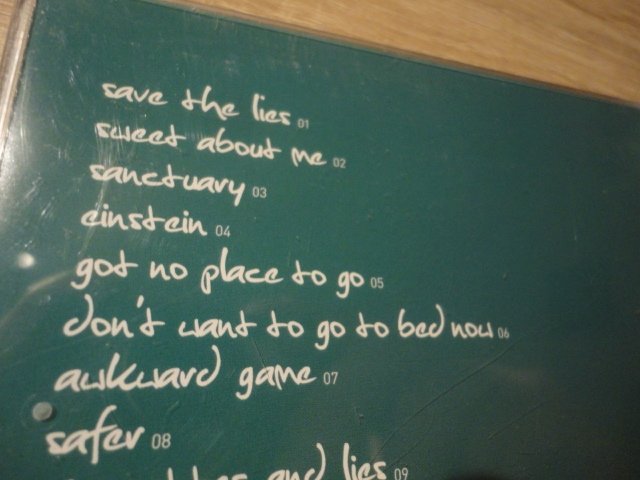 save the lies 01
sweet about me 02
sanctuary 03
einstein 04
got no place to go 05
don't want to go to bed now 06
awkward game 07
safer 08
and lies 09